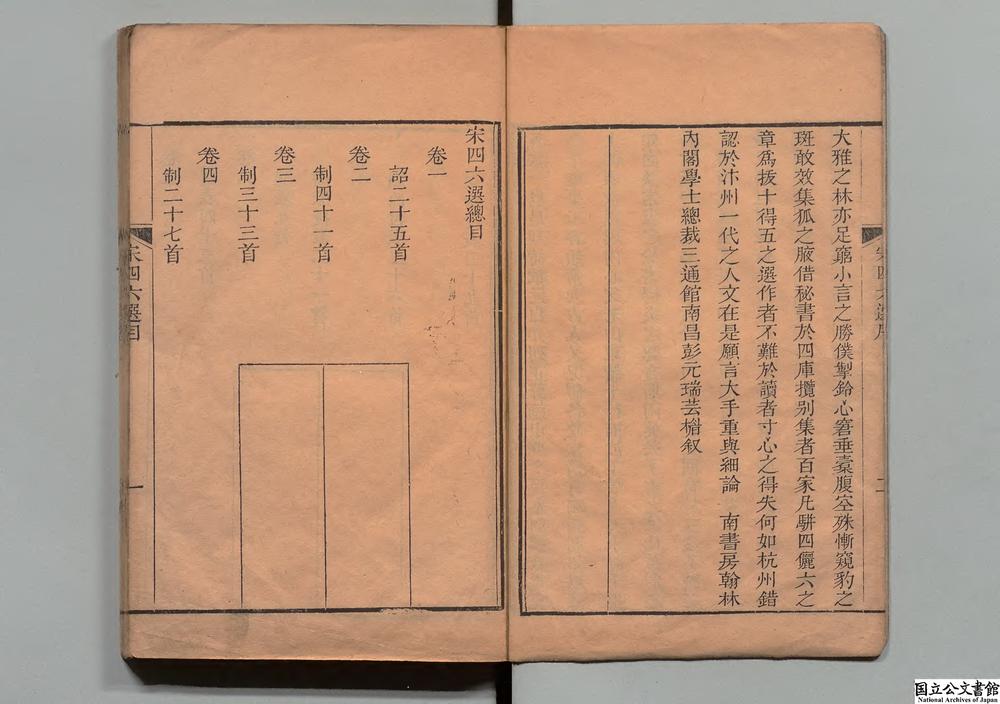 大雅之林亦足窮小言之勝僕掣鈴心窘垂橐腹空殊慚窺豹之
斑敢效集狐之腋借秘書於四庫攬别集者百家凡駢四儷六之
章爲拔十得五之選作者不難於讀者寸心之得失何如杭州錯
認於汴州一代之人文在是願言大手重與細論 南書房翰林
内閣學士總裁三通館南昌彭元瑞芸楣叙
二
宋四六選總目
卷一
詔二十五首
卷二
制四十一首
卷三
制三十三首
卷四
制二十七首
宋四六選目
一
国立公文書館
National Archives of Japan